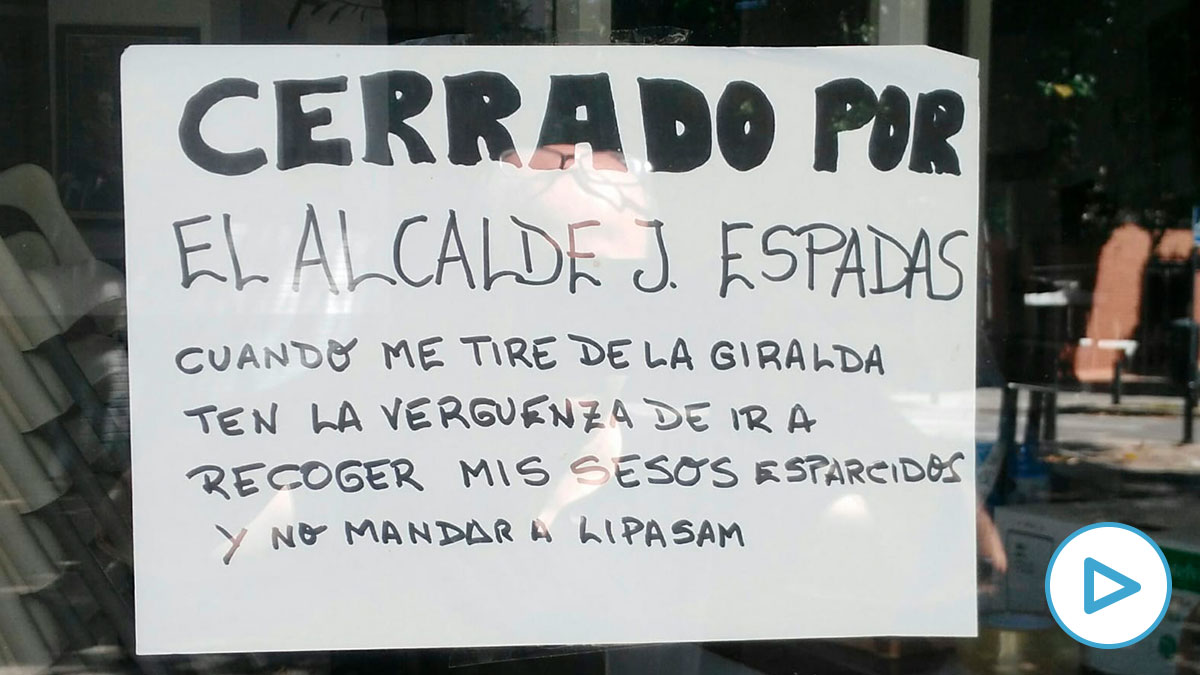 CERRADO POR
EL ALCALDE J. ESPADAS
CUANDO ME TIRE DE LA GIRALDA
TEN LA VERGUENZA DE IR A
RECOGER MIS SESOS ESPARCIDOS
Y NO MANDAR A LIPASAM